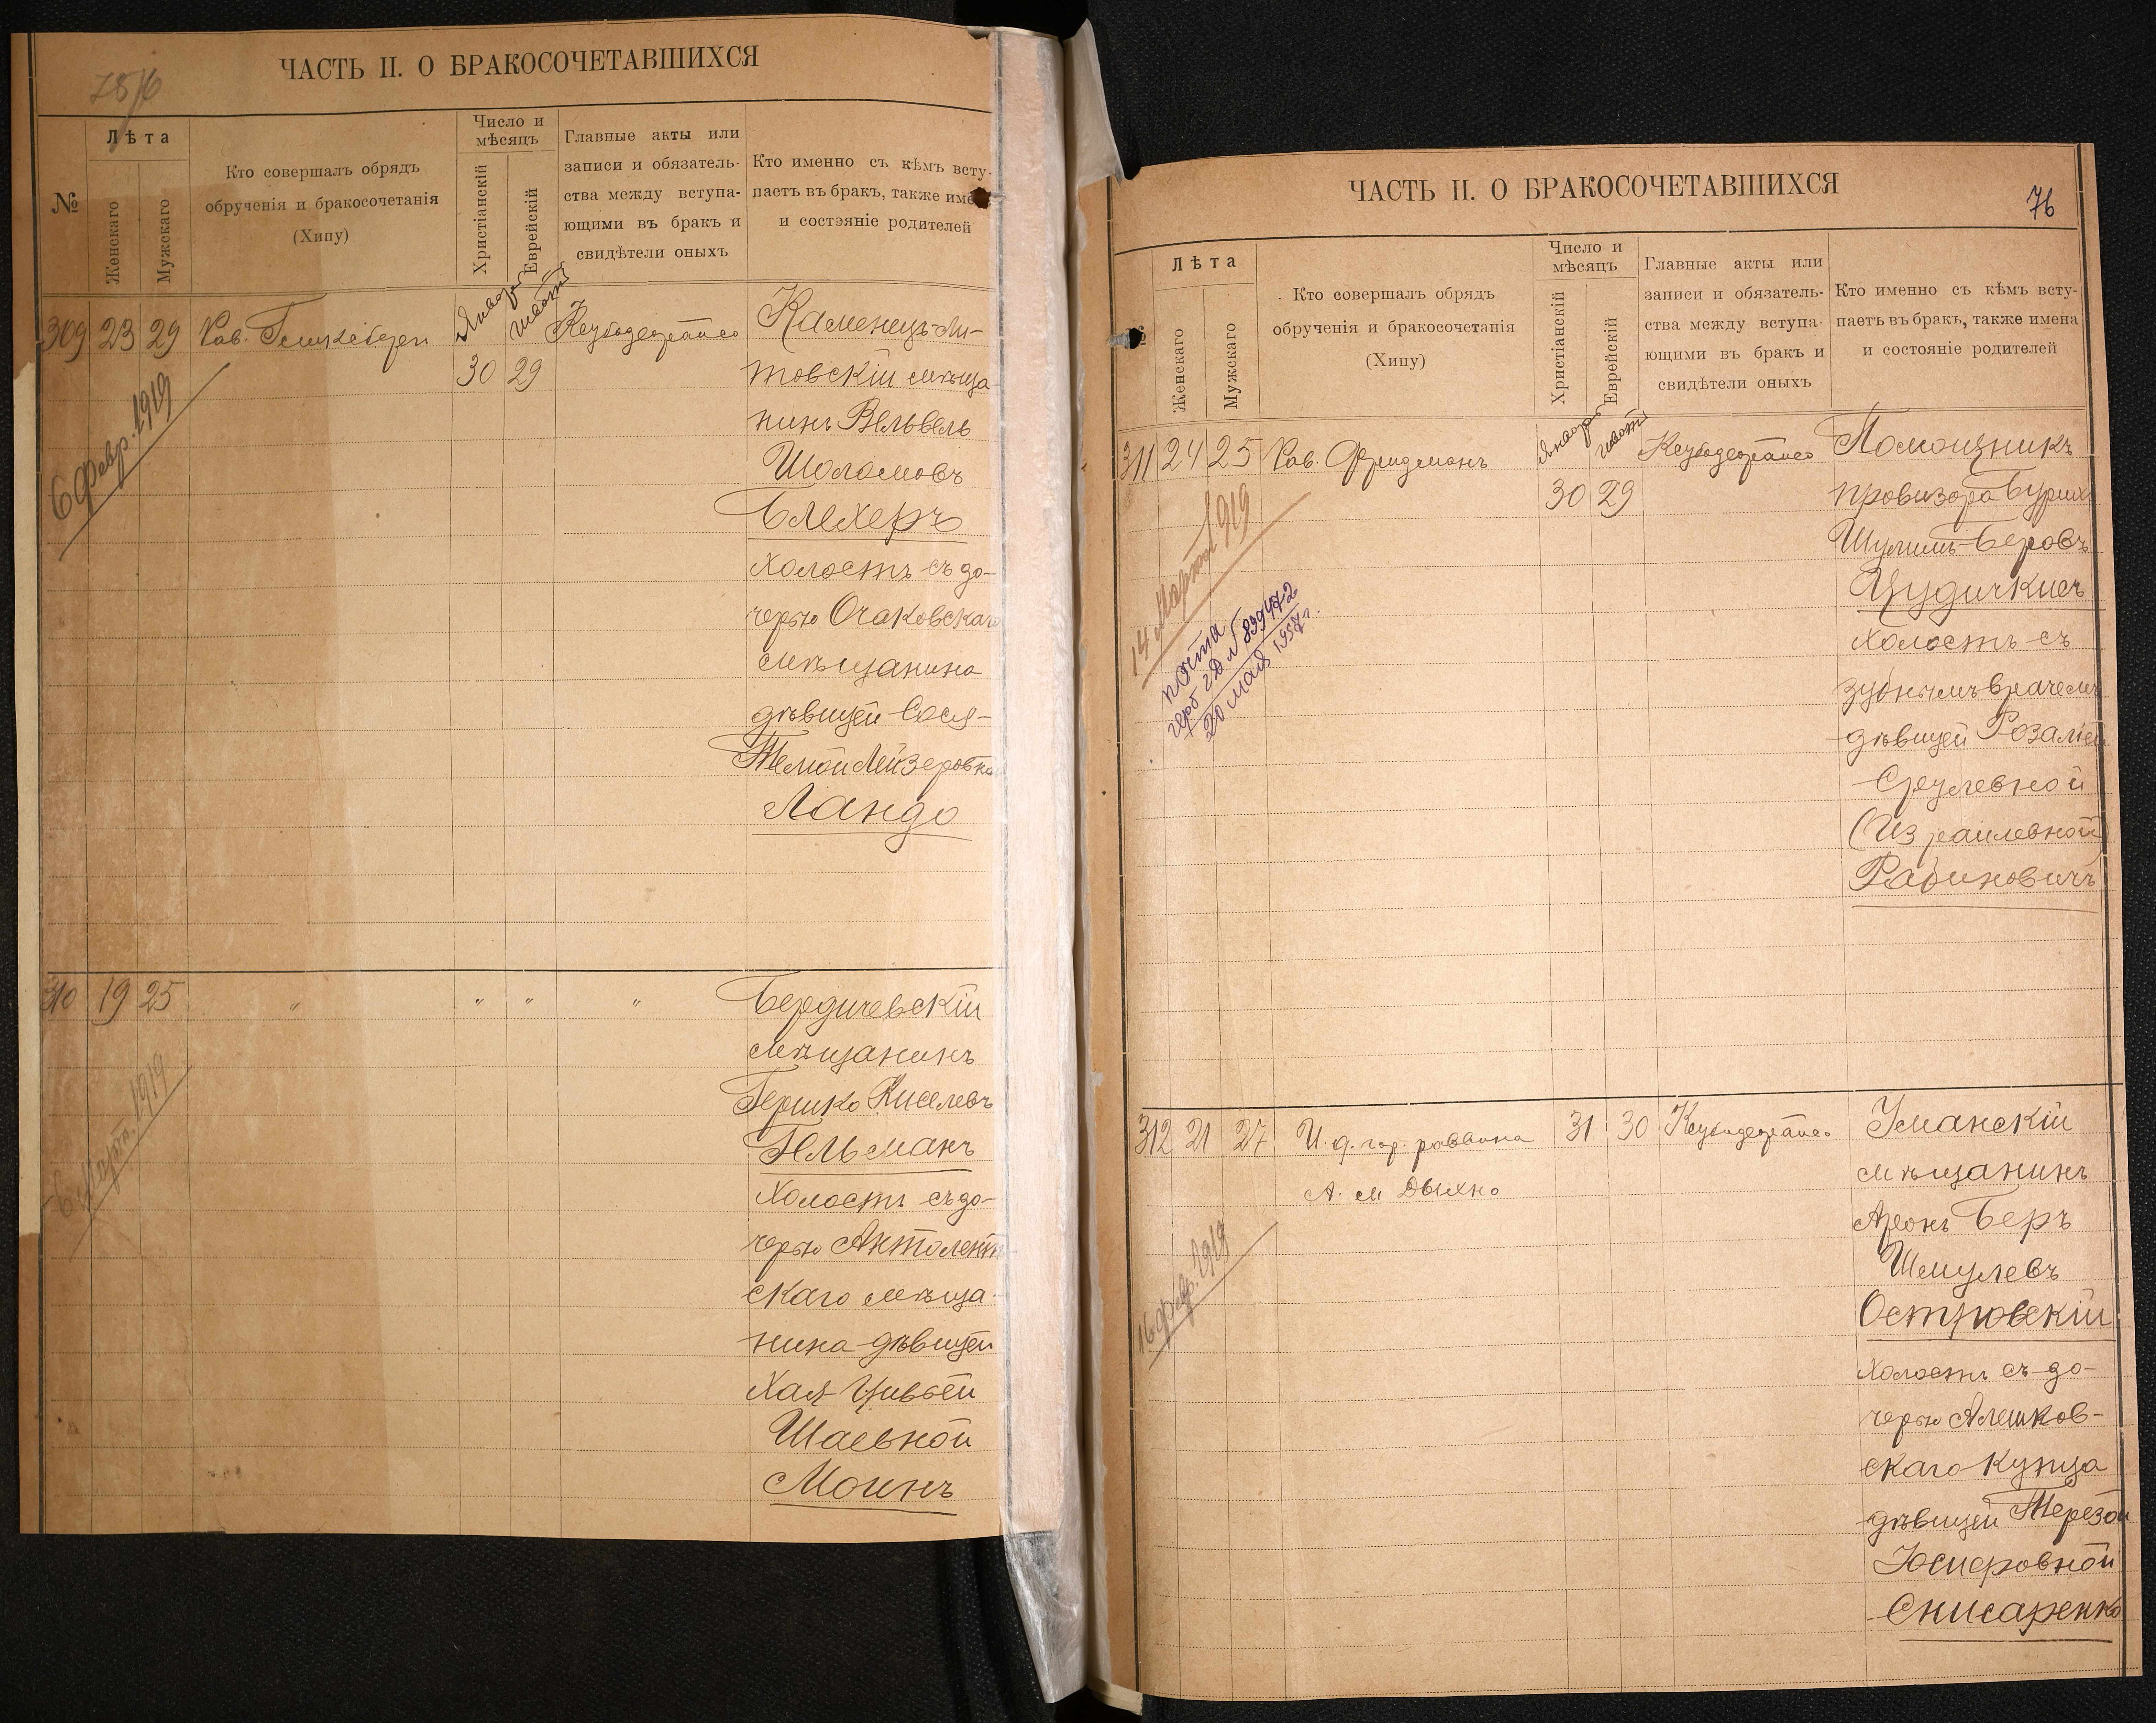 75/6
ЧАСТЬ II. О БРАКОСОЧЕТАВШИХСЯ
№
Лѣта
Женскаго
Мужскаго
Кто совершалъ обрядъ
обрученія и бракосочетанія
(Хипу)
Число и
мѣсяцъ
Христіанскій
Еврейскій
Главные акты или
записи и обязатель-
ства между вступа-
ющими въ бракъ и
свидѣтели оныхъ
Кто именно съ кѣмъ всту-
паетъ въ бракъ, также име
и состэяніе родителей
309 23 29 Рав.
Января
30 29
6 февр. 1919
Каменецъ-Ли-
товскій мѣща-
нинъ Вельвель
Шоломовъ
Блехеръ
холостъ съ до-
черью Очаковскаго
мѣщанина
дѣвицей Сося-
Темой Лейзеровной
Ландо
310 19 25 " " " "
6 Марта 1919
Бердичевскій
мѣщанинъ
Гершко Киселевъ
Гельманъ
холостъ съ до-
черью
скаго мѣща-
нина дѣвицей
Хая-Цивьей
Шаевной
Моинъ
ЧАСТЬ II. О БРАКОСОЧЕТАВШИХСЯ
76
№
Лѣта
Женскаго
Мужскаго
Кто совершалъ обрядъ
обрученія и бракосочетанія
(Хипу)
Число и
мѣсяцъ
Христіанскій
Еврейскій
Главные акты или
записи и обязатель-
ства между вступа-
ющими въ бракъ и
свидѣтели оныхъ
Кто именно съ кѣмъ всту-
паетъ въ бракъ, также имена
и состояніе родителей
311 24 25 Рав. Фридманъ
Января
30 29
14 Марта 1919
почта
герб 2Д № 839472
20 мая 1957 г.
Помощникъ
провизора
Шулимъ-Беровъ
холостъ съ
зубнымъ врачемъ
дѣвицей Розаліей
Срулевной
(Израилевной)
Рабиновичъ
312 21 27 И. д. гор. раввина 31 30
А. М Дыхно
16 февр. 1919
Уманскій
мѣщанинъ
Аронъ Беръ
Шмулевъ
Островскій
холостъ съ до-
черью Алешков-
скаго купца
дѣвицей Терезой
Юсиповной
Снисаренко